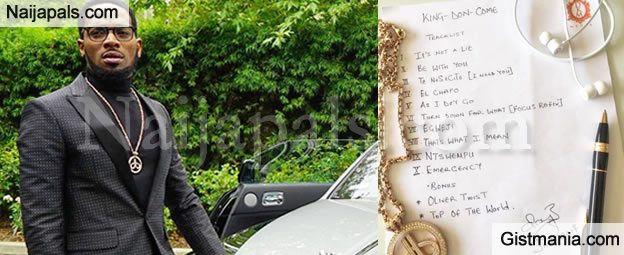 Naijapals.com
Naijapals.com
KING-DON-COME
TRACKLIST
I IT'S NOT A LIE
II BE WITH YOU
III TE NECESITO [I NEED YOU]
IV EL CHAPO
V AS I DEY GO
VI TURN DOWN FOR WHAT [FOCUS RAFN]
VII EGNEJI
VIII THAT'S WHAT I MEAN
IX NTSWEMPU
X EMERGENCY
*BONUS
* OLIVER TWIST
* TOP OF THE WORLD.
Gistmania.com